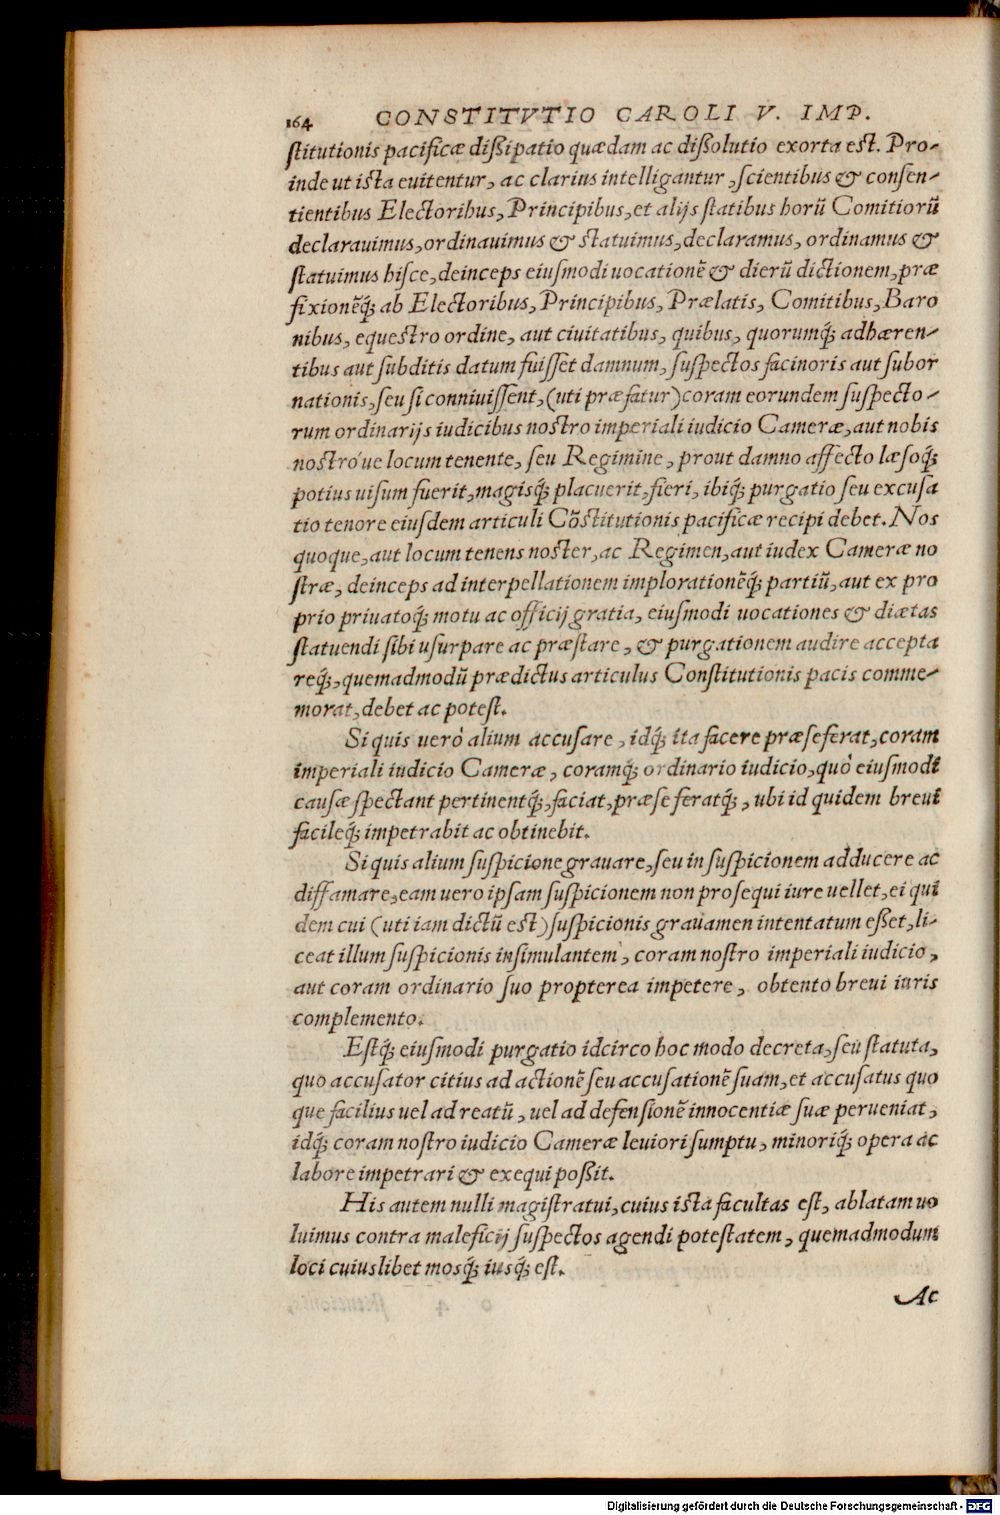 164 CONSTITVTIO CAROLI V. IMP.
ſtitutionis pacificæ dißipatio quædam ac dißolutio exorta eſt. Pro-
inde ut iſta euitentur, ac clarius intelligantur, ſcientibus & conſen-
tientibus Electoribus, Principibus, et alijs ſtatibus horũ Comitiorũ
declarauimus, ordinauimus & ſtatuimus, declaramus, ordinamus &
ſtatuimus hiſce, deinceps eiuſmodi uocationẽ & dierũ dictionem, præ
fixionẽq́; ab Electoribus, Principibus, Prælatis, Comitibus, Baro
nibus, equeſtro ordine, aut ciuitatibus, quibus, quorumq́; adhæren-
tibus aut ſubditis datum fuiſſet damnum, ſuſpectos facinoris aut ſubor
nationis, ſeu ſi conniuiſſent, (uti præfatur) coram eorundem ſuſpecto-
rum ordinarijs iudicibus noſtro imperiali iudicio Cameræ, aut nobis
noſtróue locum tenente, ſeu Regimine, prout damno affecto læſoq́;
potius uiſum fuerit, magisq́; placuerit, fieri, ibiq́; purgatio ſeu excuſa
tio tenore eiuſdem articuli Cõſtitutionis pacificæ recipi debet. Nos
quoque, aut locum tenens noſter, ac Regimen, aut iudex Cameræ no
ſtræ, deinceps ad interpellationem implorationẽq́; partiũ, aut ex pro
prio priuatoq́; motu ac officij gratia, eiuſmodi uocationes & diætas
ſtatuendi ſibi uſurpare ac præſtare, & purgationem audire accepta
req́;, quemadmodũ prædictus articulus Conſtitutionis pacis comme-
morat, debet ac poteſt.
Si quis uerò alium accuſare, idq́; ita facere præ ſe ferat, coram
imperiali iudicio Cameræ, coramq́; ordinario iudicio, quò eiuſmodi
cauſæ ſpectant pertinentq́;, faciat, præ ſe feratq́;, ubi id quidem breui
facileq́; impetrabit ac obtinebit.
Si quis alium ſuſpicione grauare, ſeu in ſuſpicionem adducere ac
diffamare, eam uero ipſam ſuſpicionem non proſequi iure uellet, ei qui
dem cui (uti iam dictũ eſt) ſuſpicionis grauamen intentatum eßet, li-
ceat illum ſuſpicionis inſimulantem, coram noſtro imperiali iudicio,
aut coram ordinario ſuo propterea impetere, obtento breui iuris
complemento.
Eſtq́; eiuſmodi purgatio idcirco hoc modo decreta, ſeu ſtatuta,
quo accuſator citius ad actionẽ ſeu accuſationẽ ſuam, et accuſatus quo
que facilius uel ad reatũ, uel ad defenſionẽ innocentiæ ſuæ perueniat,
idq́; coram noſtro iudicio Cameræ leuiori ſumptu, minoriq́; opera ac
labore impetrari & exequi poßit.
His autem nulli magiſtratui, cuius iſta facultas eſt, ablatam uo
luimus contra maleficij ſuſpectos agendi poteſtatem, quemadmodum
loci cuiuslibet mosq́; iusq́; eſt.
Ac
Digitalisierung gefördert durch die Deutsche Forschungsgemeinschaft - DFG